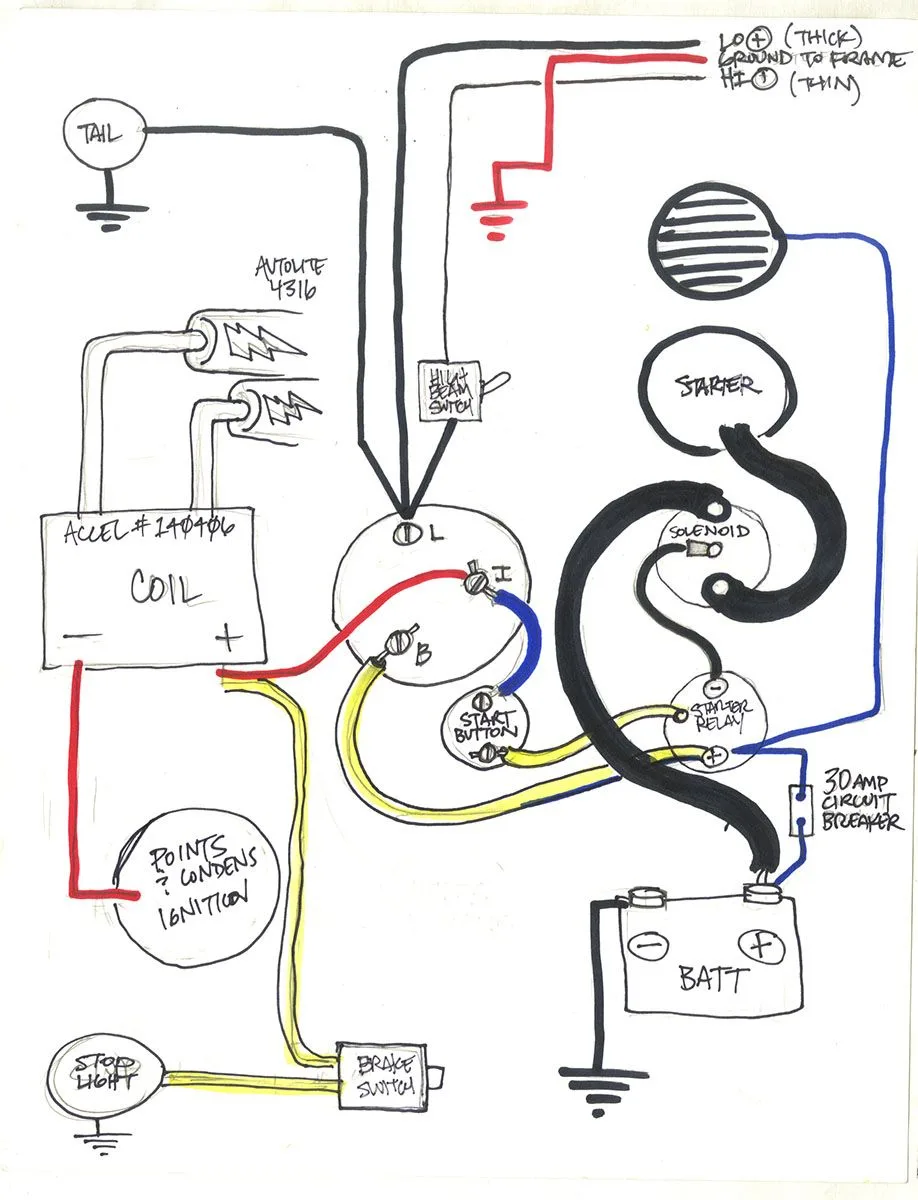 LO + (THICK)
GROUND TO FRAME
HI + (THIN)
TAIL
AUTOLITE
4316
HIGH
BEAM
SWITCH
STARTER
ACCEL # 140406
COIL
- +
L
I
B
SOLENOID
START
BUTTON
-
STARTER
RELAY
+
30 AMP
CIRCUIT
BREAKER
POINTS
& CONDENS
IGNITION
- +
BATT
STOP
LIGHT
BRAKE
SWITCH